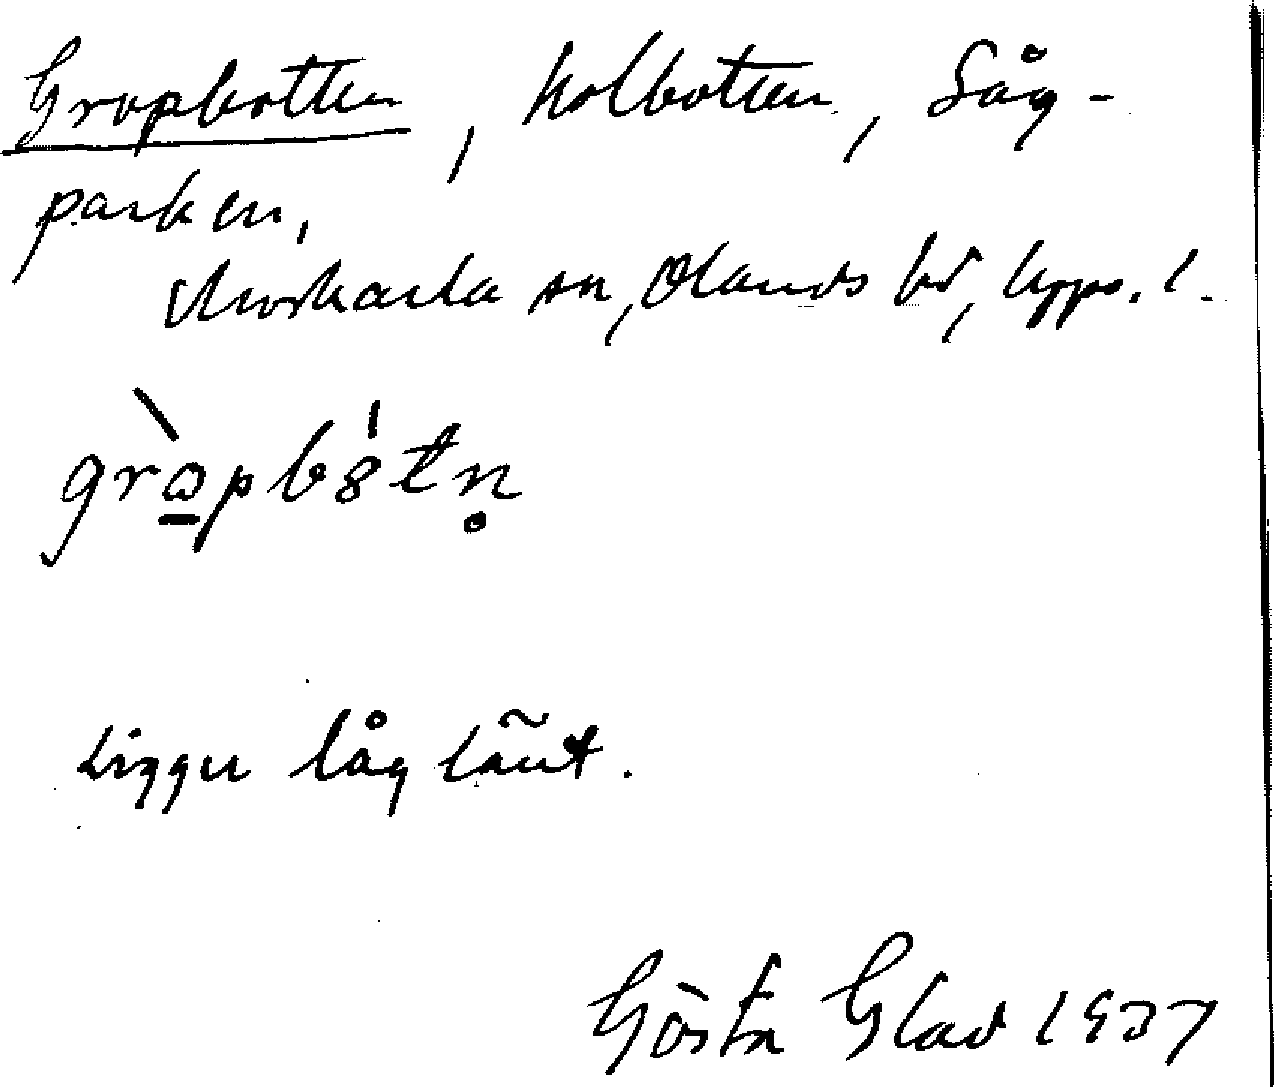 Gropbotten, kolbotten, Såg-
parken,
Morkarla sn, Olands hd, Upps. l.
gròpbótn̥
Ligger låglänt.
Gösta Glad 1937